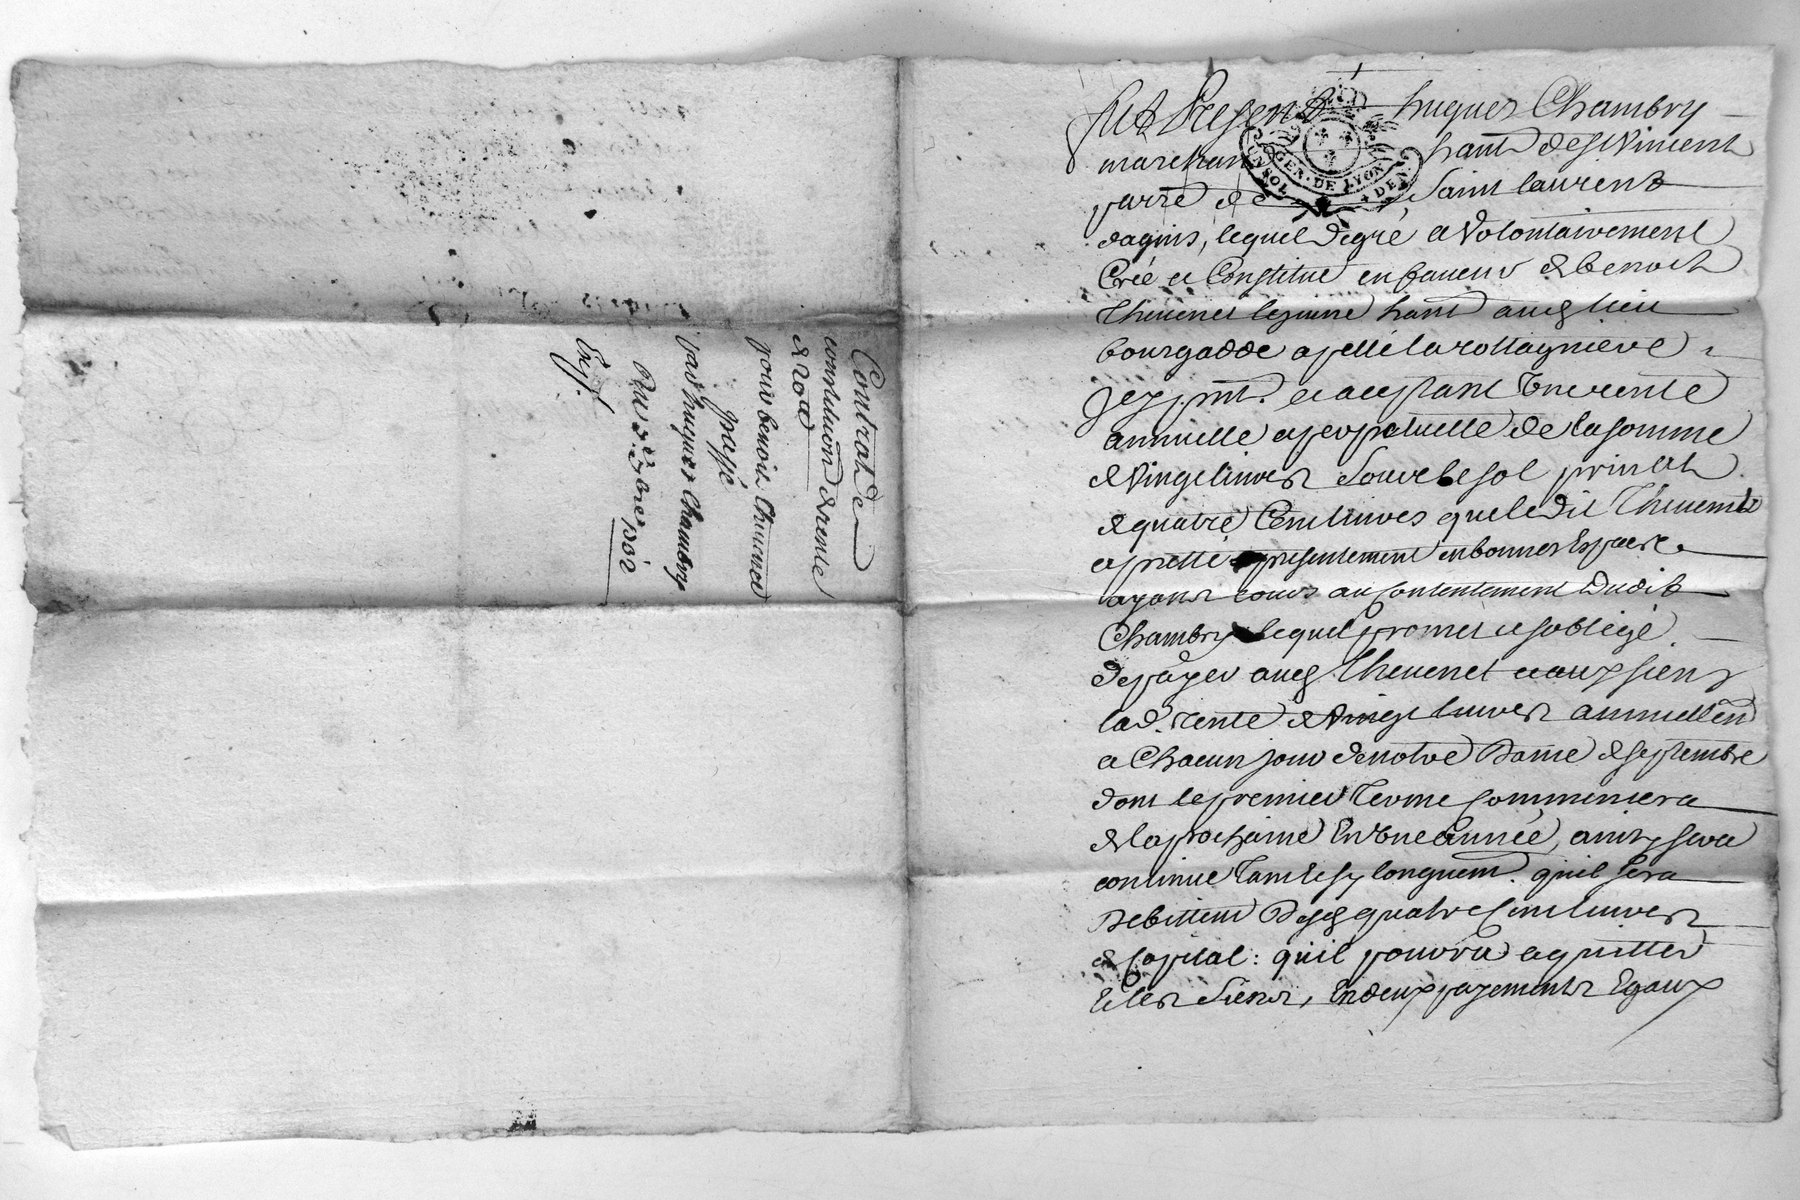 Contrat de
constitution de rente
de 400 #
pour benoit Thevenet
passé
par hugues Chambry
Exp.
fut Present hugues Chambry
marchan hant de st Vincent
parre de Saint laurent
dagins, lequel de gré et Volontairement
Créé et Constitue en faveur de benoit
Thevenet le jeune hant aud lieu
bourgadde apellé la rollagniere
icy pnt. et aceptant Une rente
annuelle et perpetuelle de la somme
de Vingt livres sour le sol princt
de quatre Cent livres que ledit Thevenet
a pretté presentement en bonnes Espece
ayant cours au Contentement dudit
Chambry lequel promet et soblige
de payer aud Thevenet et aux siens
lad. rente de Vingt livres annuellem
a Chacun jour de notre Dame de septembre
dont le premier Terme Commencera
de la prochaine En Une année, ainsy sera
continué Tant et sy longuem. quil sera
Debitteur Desd quatre Cent livres
de Capital : quil pourra aquitter
et les Siens, En deux payements Egaux
GEN. DE LYON
UN SOL DEN